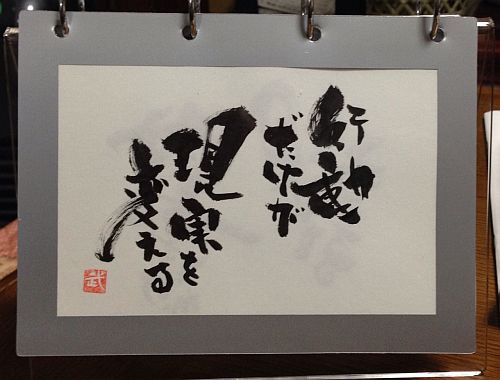 行動
だけが
現実を
変える
武